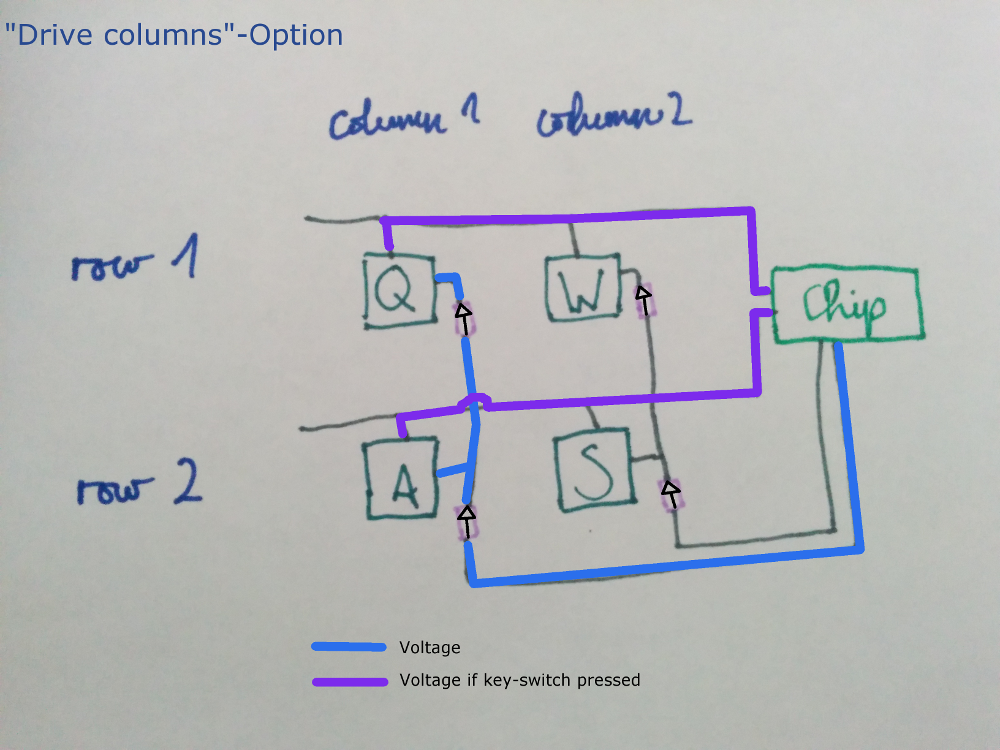 "Drive columns"-Option
column 1 column 2
row 1
Q W Chip
row 2
A S
Voltage
Voltage if key-switch pressed